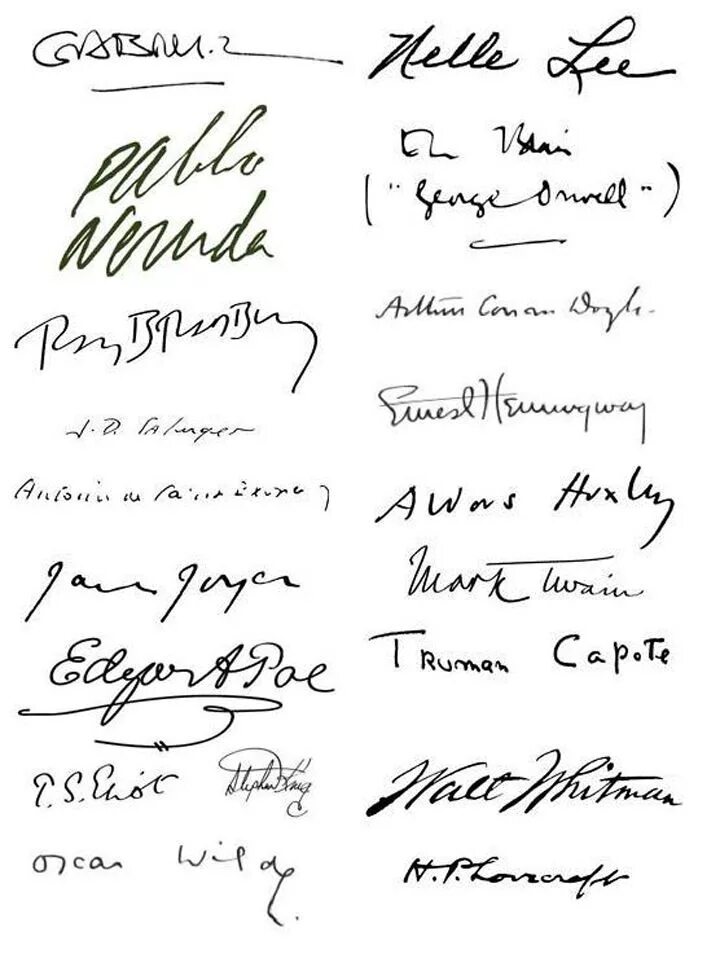 GABRIEL
Pablo
Neruda
Ray Bradbury
J.D. Salinger
Antoine de Saint Exupery
James Joyce
Edgar A Poe
T.S. Eliot
Stephen King
Oscar Wilde
Nelle Lee
Eric Blair
("George Orwell")
Arthur Conan Doyle.
Ernest Hemingway
Aldous Huxley
Mark Twain
Truman Capote
Walt Whitman
H.P. Lovecraft